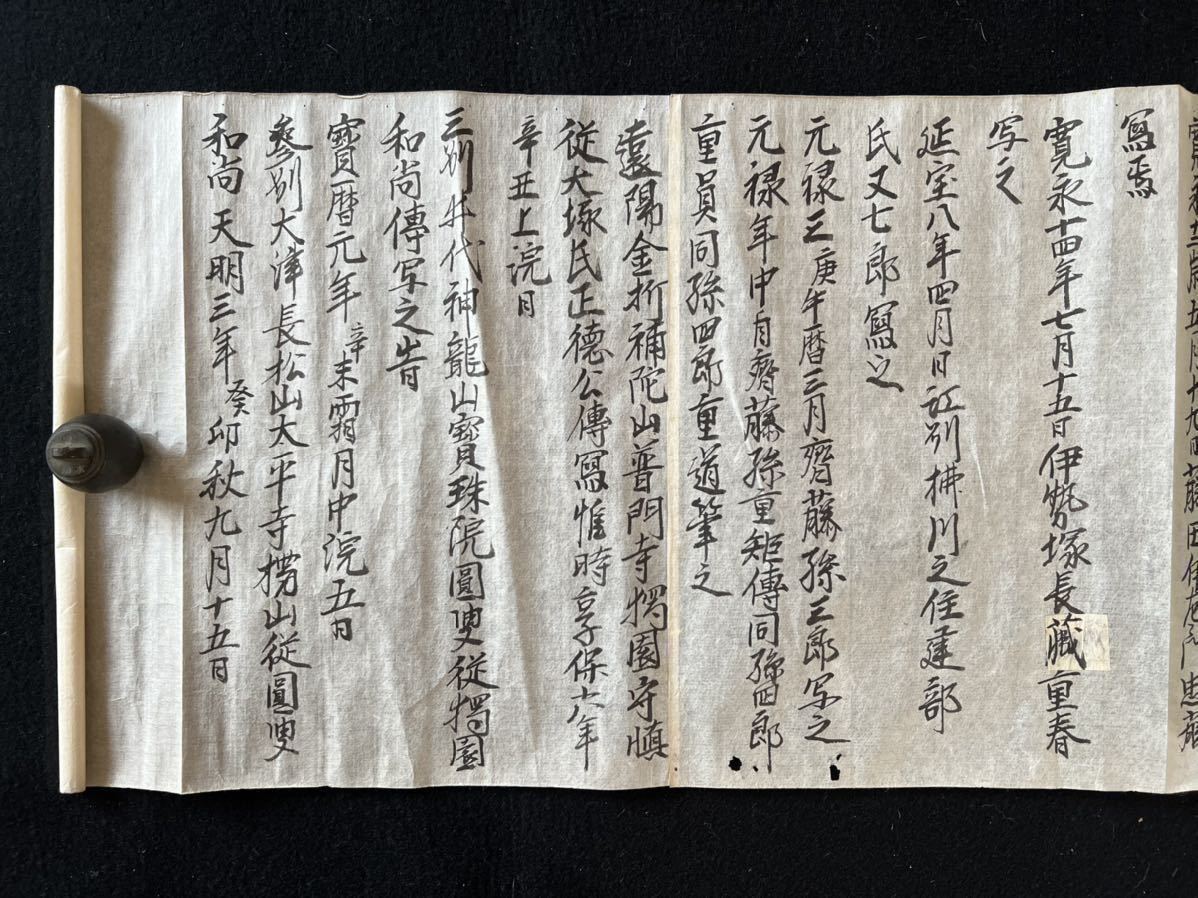 寫焉
寛永十四年七月十五日伊勢塚長藏重春
写之
延宝八年四月日江州拂川之住建部
氏又七郎寫之
元禄三庚午暦三月齊藤孫三郎写之
元禄年中自齊藤孫重矩傳同孫四郎
重員同孫四郎重道筆之
遠陽金折補陀山普門寺獨園守愼
從大塚氏正徳公傳寫惟時享保六年
辛丑上浣日
三州牛代神龍山寳珠院圓叟從獨園
和尚傳写之旹
寳暦元年辛未霜月中浣五日
參州大津長松山太平寺山從圓叟
和尚天明三年癸卯秋九月十五日